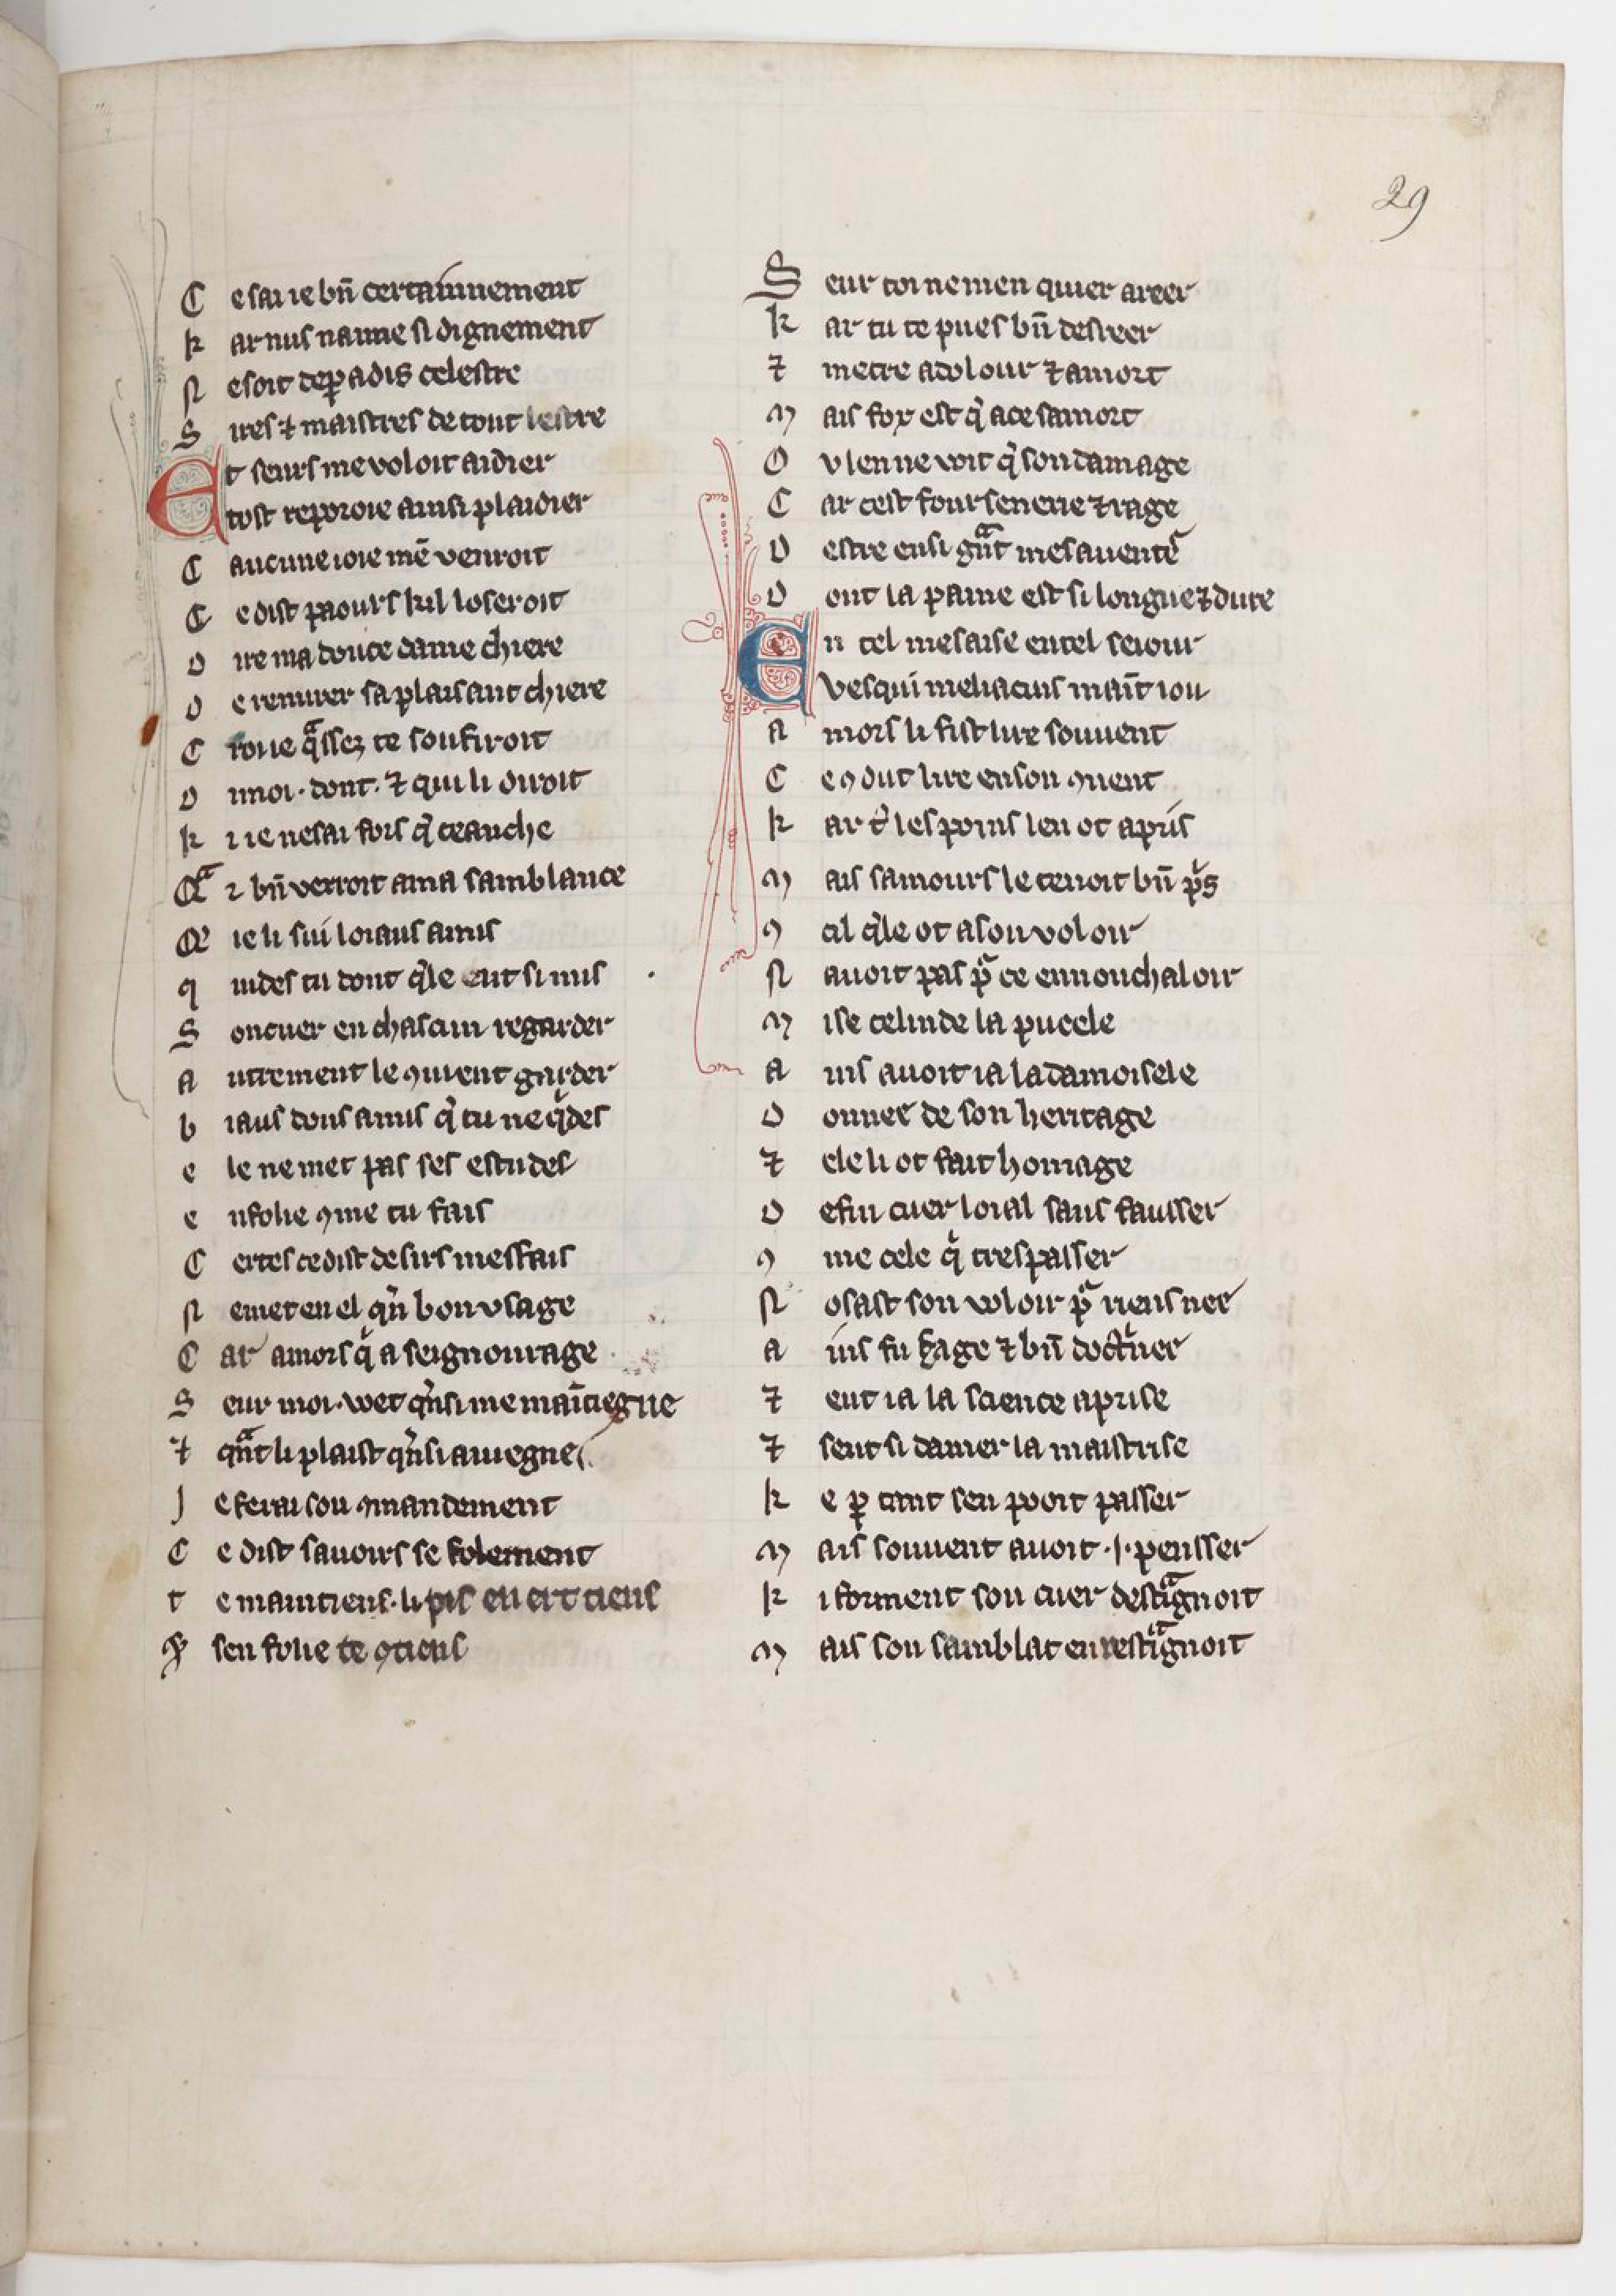 29
C e sai ie bn̄ certainnement
k ar nus nainme si dignement
N e soit de ꝑadis celestre
S ires ⁊ maistres de tout lestre
Et seurs me voloit aidier
tost reporoie ainsi plaidier
C aucune ioie mē venroit
C e dist paours kil loseroit
D ire ma douce dame chiere
D e remirer sa plaisant chiere
C roue qᵃssez te soufiroit
D i moi · dont · ⁊ qui li diroit
k i ie ne sai fors q̇ ceanche
Qᵃ i bn̄ verroit a ma samblance
Q' ie li sui loiaus amis
q uides tu dont q̓le eut si mis
S on cuer en chascun regarder
a utrement le ꝯuient garder
b iaus dous amis q̓ tu ne qͥdes
e le ne met pas ses estudes
e n folie ꝯme tu fais
C ertes ce dist desirs meffais
N e met en el qͣn bon vsage
C ar amors qͥ a seignourage
S eur moi · wet q̓nsi me maītiegne
⁊ qᵃnt li plaist q̓nsi aviegne
J e ferai son ꝯmandement
C e dist sauoirs se folement
t e maintiens · li pis en ert tiens
sen folie te ꝯtiens
S eur toi ne men quier areer
k ar tu te pues bn̄ desreer
⁊ metre a dolour ⁊ a mort
M ais fox est q̓ a ce samort
O v len ne voit q̓ son damage
C ar cest foursenerie ⁊ rage
D estre ensi gᵃnt mesauentᵉ
D ont la paine est si longue ⁊ dure
En tel mesaise en tel seiour
vesqui meliacins maīt iou
A mors li fist lire souuent
C e ꝯ dut lire en son ꝯuent
k ar tͬ les poins len ot apris
M ais samours le tenoit bn̄ pͥs
ꝯ cil q̓le ot a son voloir
N auoit pas pᵒ ce en nonchaloir
M ise celinde la pucele
A ins auoit ia la damoisele
D onnee de son heritage
⁊ ele li ot fait homage
D e fin cuer loial sans fausser
ꝯ me cele qͥ trespasser
N osast son voloir pᵒ riens nee
A ins fu sage ⁊ bn̄ doctͥnee
⁊ eut ia la science aprise
⁊ sent si damer la maistrise
k e ꝑ tant sen pooit passer
M ais souuent auoit ·i· pensser
k i forment son cuer destᵃignoit
M ais son samblāt en restᵃignoit